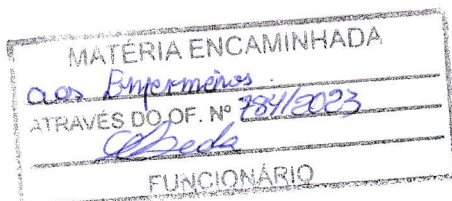 MATÉRIA ENCAMINHADA
aos Enfermeiros.
ATRAVÉS DO OF. Nº 784/2023
FUNCIONÁRIO